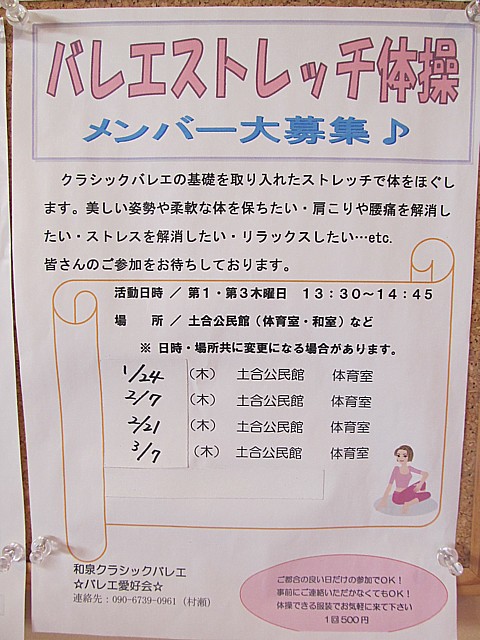 バレエストレッチ体操
メンバー大募集♪
クラシックバレエの基礎を取り入れたストレッチで体をほぐし
ます。美しい姿勢や柔軟な体を保ちたい・肩こりや腰痛を解消し
たい・ストレスを解消したい・リラックスしたい…etc.
皆さんのご参加をお待ちしております。
活動日時 ／ 第1・第3木曜日 13：30～14：45
場 所 ／ 土合公民館（体育室・和室）など
※ 日時・場所共に変更になる場合があります。
1/24 （木） 土合公民館 体育室
2/7 （木） 土合公民館 体育室
2/21 （木） 土合公民館 体育室
3/7 （木） 土合公民館 体育室
和泉クラシックバレエ
☆バレエ愛好会☆
連絡先：090-6739-0961（村瀬）
ご都合の良い日だけの参加でOK！
事前にご連絡いただかなくてもOK！
体操できる服装でお気軽に来て下さい
1回500円